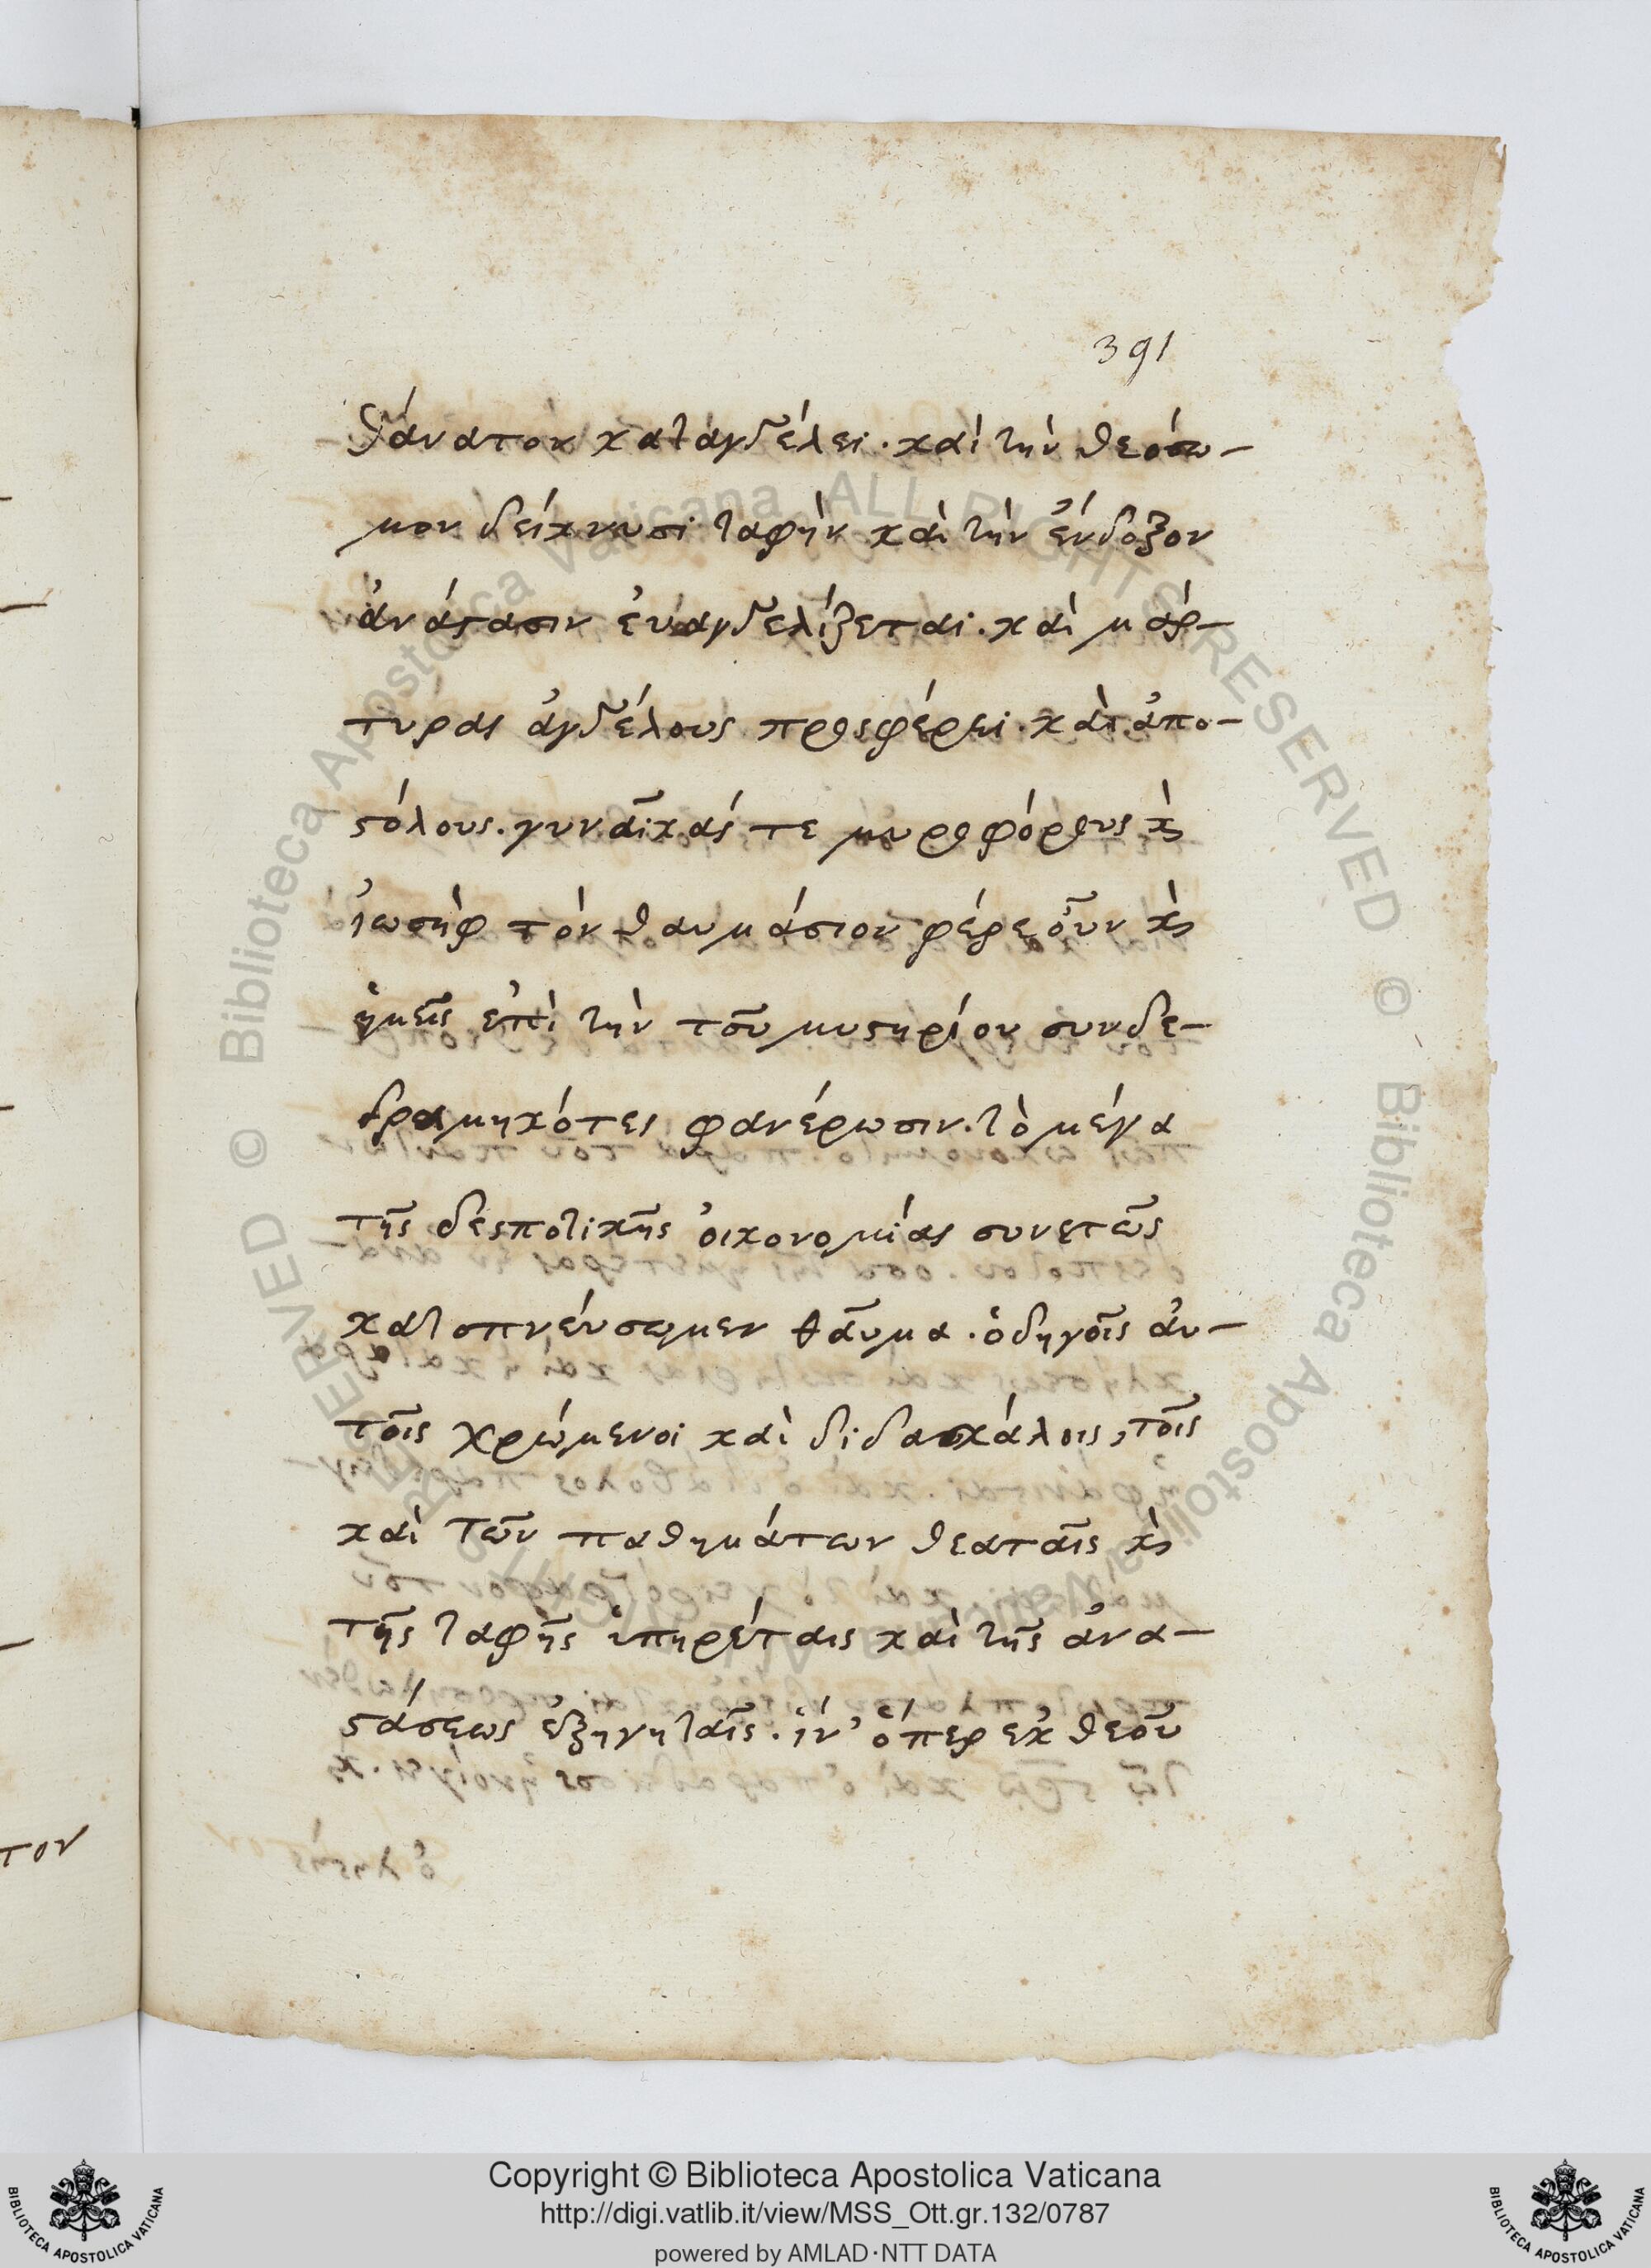 391
θάνατον καταγγέλει· καὶ τὴν θεόσω-
μον δείκνυσι ταφὴν καὶ τὴν ἔνδοξον
ἀνάστασιν ἐυαγγελίζεται· καὶ μάρ-
τυρας ἀγγέλους προσφέρει· καὶ ἀπο-
στόλους· γυναῖκάς τε μυροφόρους κὶ
ἰωσὴφ τὸν θαυμάσιον φέρε οὖν κὶ
ἡμεῖς ἐπὶ τὴν τοῦ μυστηρίου συνδε-
δραμηκότες φανέρωσιν· τὸ μέγα
τῆς δεσποτικῆς ὀικονομίας συνετῶς
κατοπτεύσωμεν θαῦμα· ὁδηγοῖς ἀυ-
τοῖς χρώμενοι καὶ διδασκάλοις, τοῖς
καὶ τῶν παθημάτων θεαταῖς κὶ
τῆς ταφῆς ὑπηρέταις καὶ τῆς ἀνα-
στάσεως ἐξηγηταῖς· ἵν' ὅπερ ἐκ θεοῦ
τον
Copyright © Biblioteca Apostolica Vaticana
http://digi.vatlib.it/view/MSS_Ott.gr.132/0787
powered by AMLAD·NTT DATA